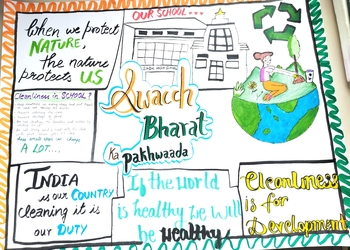 When we protect
NATURE,
the nature
protects US
OUR SCHOOL...
Cleanliness in SCHOOL?
A LOT...
Swacch
Bharat
Ka pakhwaada
INDIA
is our COUNTRY
cleaning it is
our DUTY
If the world
is healthy we will
be healthy
Cleanliness
is for
Development